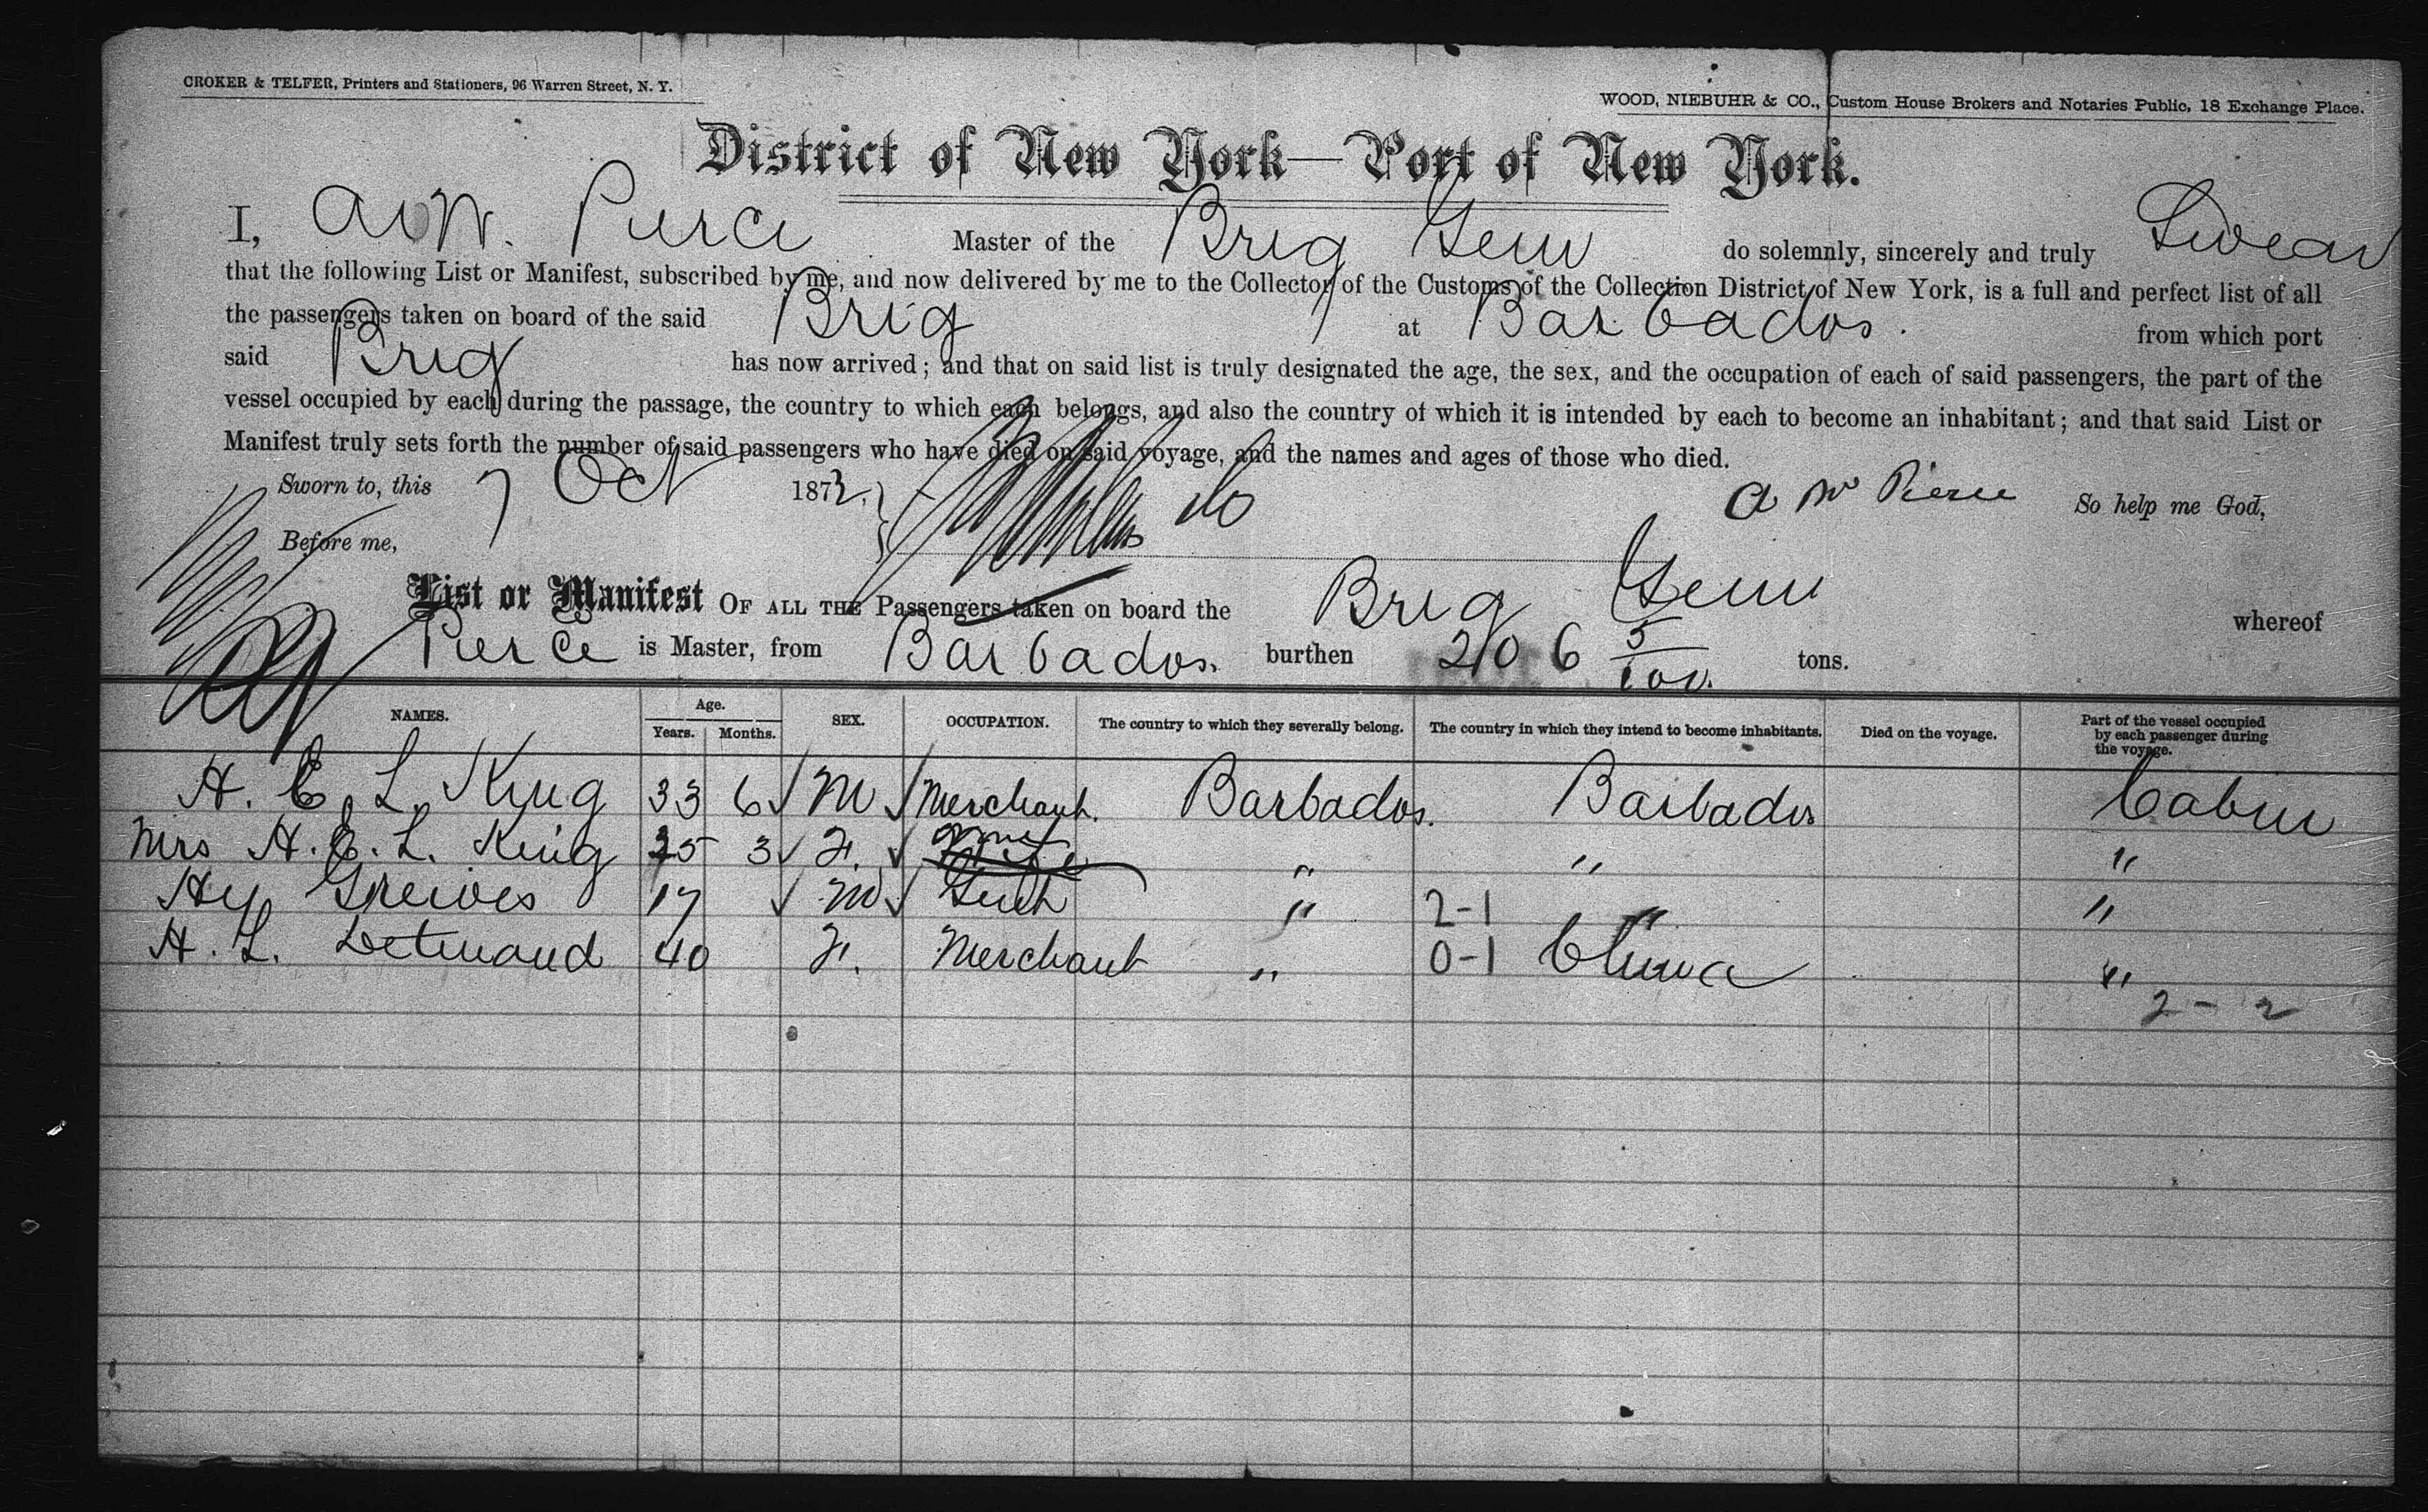 CROKER & TELFER, Printers and Stationers, 96 Warren Street, N. Y.
WOOD, NIEBUHR & CO., Custom House Brokers and Notaries Public, 18 Exchange Place.
District of New York—Port of New York.
I, A W. Pierce Master of the Brig Gem do solemnly, sincerely and truly Swear
that the following List or Manifest, subscribed by me, and now delivered by me to the Collector of the Customs of the Collection District of New York, is a full and perfect list of all
the passengers taken on board of the said Brig at Barbados. from which port
said Brig has now arrived; and that on said list is truly designated the age, the sex, and the occupation of each of said passengers, the part of the
vessel occupied by each during the passage, the country to which each belongs, and also the country of which it is intended by each to become an inhabitant; and that said List or
Manifest truly sets forth the number of said passengers who have died on said voyage, and the names and ages of those who died.
Sworn to, this 7 Oct 1873. A W Pierce So help me God,
Before me,
List or Manifest OF ALL THE Passengers taken on board the Brig Gem whereof
Pierce is Master, from Barbados. burthen 206 5/100. tons.
NAMES. Age. Years. Months. SEX. OCCUPATION. The country to which they severally belong. The country in which they intend to become inhabitants. Died on the voyage. Part of the vessel occupied by each passenger during the voyage.
H. E. L. King 33 6 M Merchant. Barbados. Barbados Cabin
Mrs H. E. L. King 25 3 F. none " " "
Hy 17 M " 2-1 " "
H. L. 40 F. Merchant " 0-1 China "
2 - 2